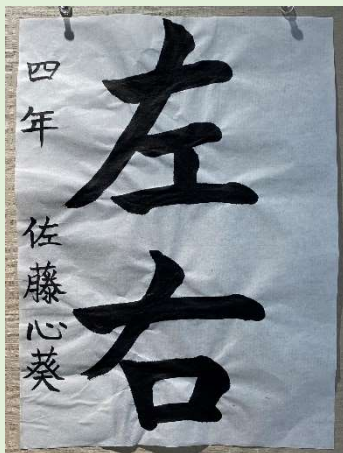 左右
四年 佐藤心葵